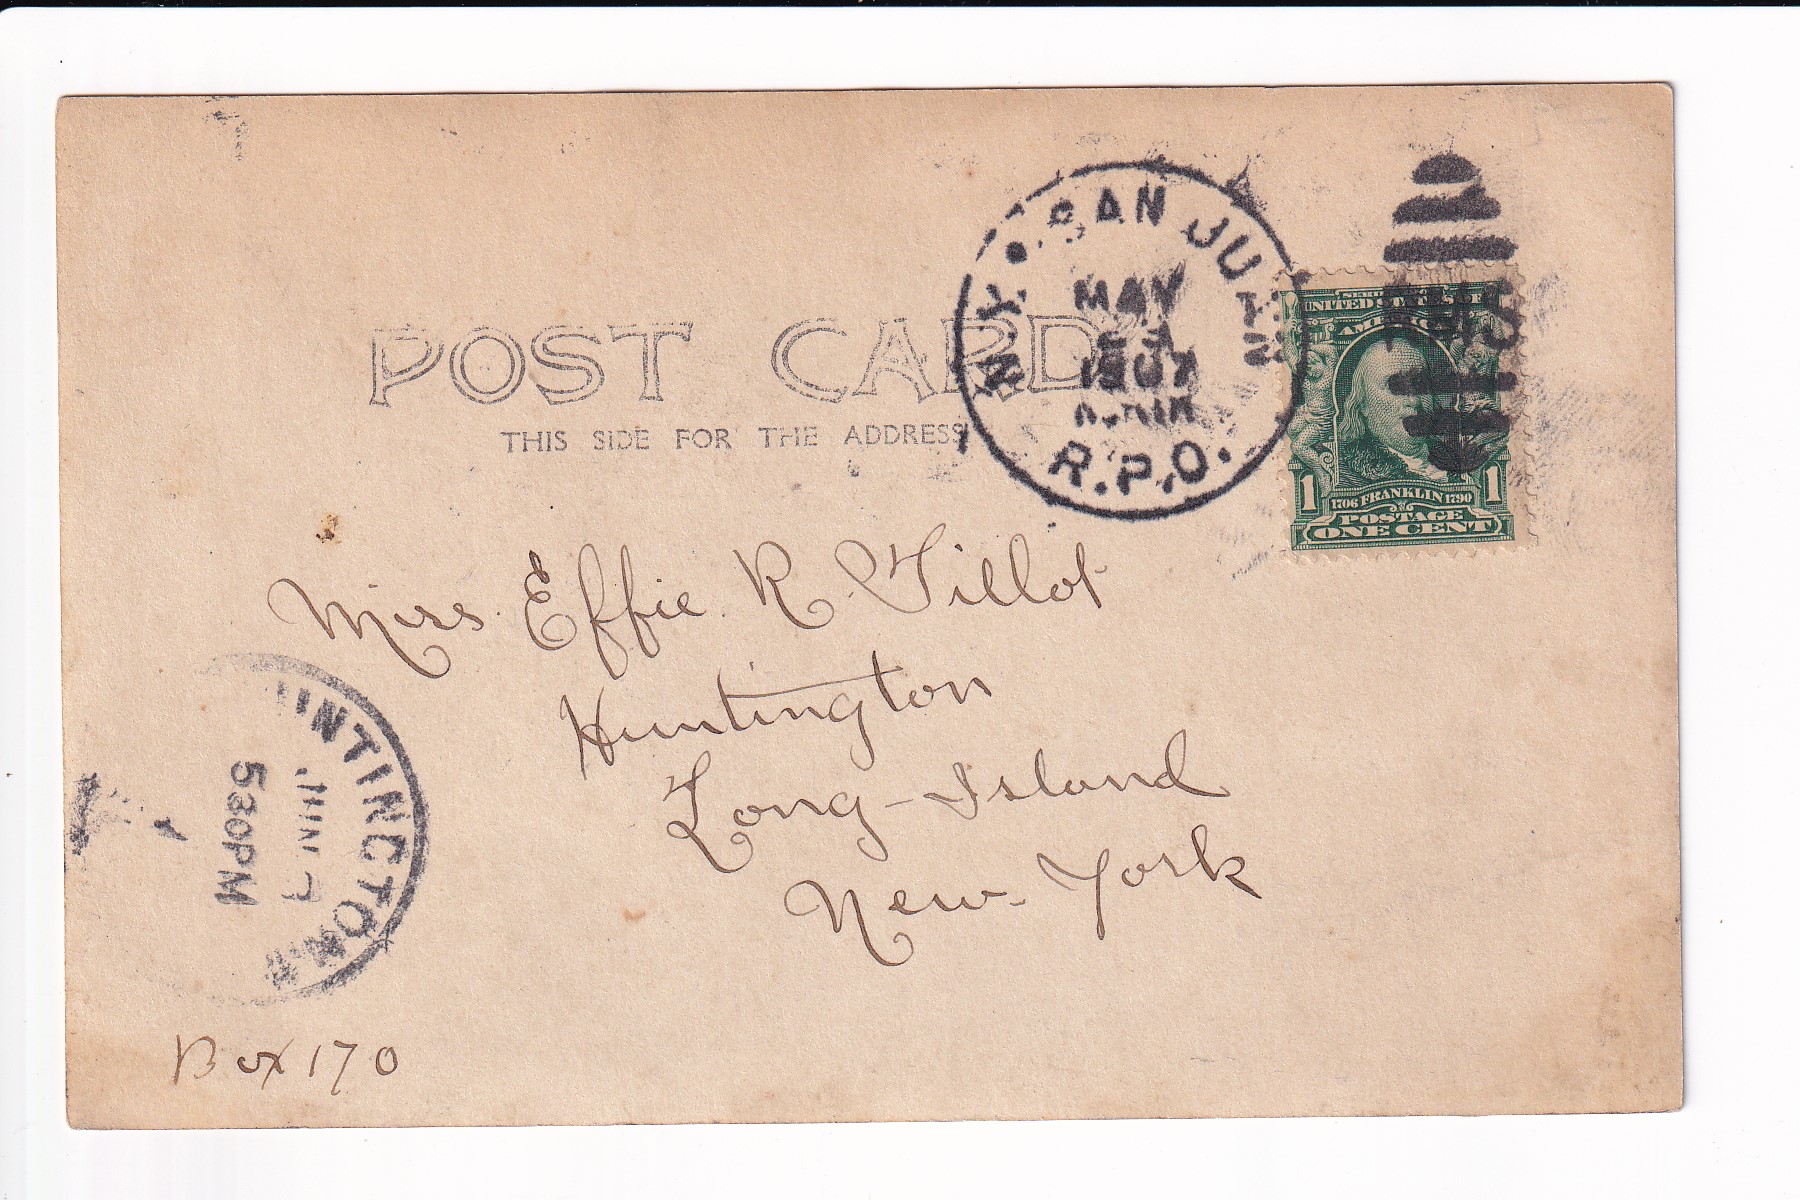 POST CARD
THIS SIDE FOR THE ADDRESS
N.Y. SAN JUAN
MAY
1907
R.P.O.
SERIES
UNITED STATES OF
AMERICA
1 1706 FRANKLIN 1790 1
POSTAGE
ONE CENT
Miss. Effie. R. Tillot
Huntington
Long-Island
New York
UNTINGTON
JUN
530PM
Box 170